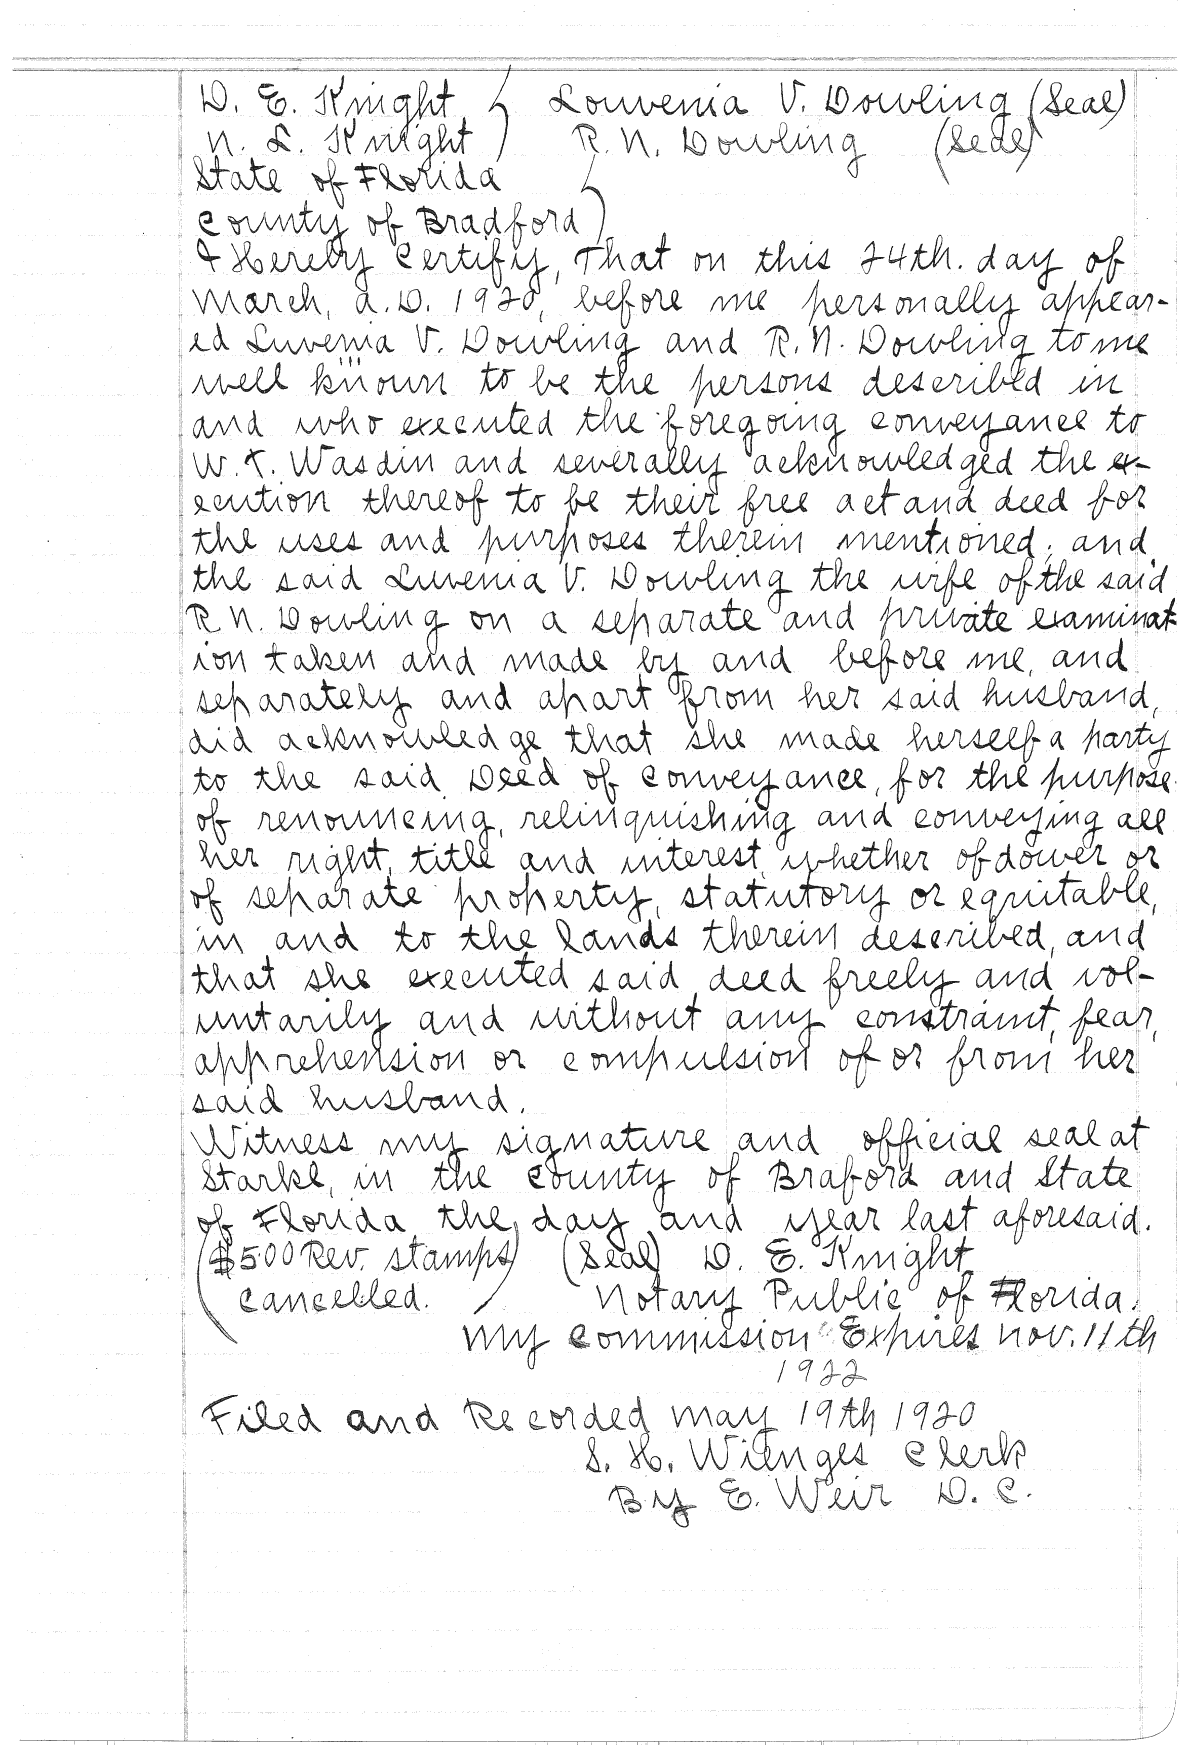 D. E. Knight ) Louvenia V. Dowling (Seal)
N. L. Knight ) R. N. Dowling (Seal)
State of Florida
County of Bradford )
I Hereby Certify, That on this 24th. day of
March, A. D. 1920, before me personally appear-
ed Luvenia V. Dowling and R. N. Dowling to me
well known to be the persons described in
and who executed the foregoing conveyance to
W. T. Wasdin and severally acknowledged the ex-
ecution thereof to be their free act and deed for
the uses and purposes therein mentioned; and
the said Luvenia V. Dowling the wife of the said
R N. Dowling on a separate and private examinat
ion taken and made by and before me, and
separately and apart from her said husband,
did acknowledge that she made herself a party
to the said Deed of Conveyance, for the purpose
of renouncing, relinquishing and conveying all
her right, title and interest, whether of dower or
of separate property, statutory or equitable,
in and to the lands therein described, and
that she executed said deed freely and vol-
untarily and without any constraint, fear,
apprehension or compulsion of or from her
said husband.
Witness my signature and official seal at
Starke, in the County of Braford and State
of Florida the day and year last aforesaid.
($500 Rev. stamps) (Seal) D. E. Knight
Cancelled. Notary Public of Florida.
My Commission Expires Nov. 11th
1922
Filed and Recorded May 19th 1920
S. H. Wienges Clerk
By E. Weir D. C.